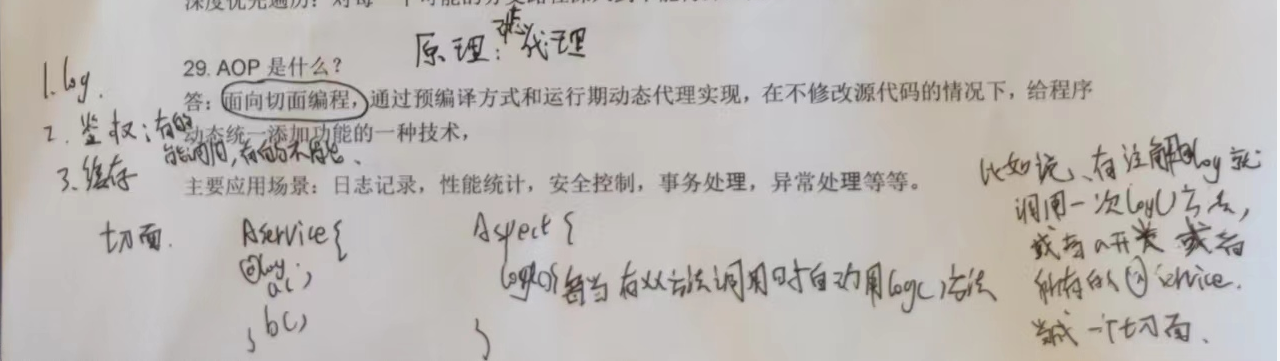 原理：动态代理
29. AOP 是什么？
1. log.
答：面向切面编程，通过预编译方式和运行期动态代理实现，在不修改源代码的情况下，给程序
动态统一添加功能的一种技术，
2. 鉴权：有的
能访问，有的不能
3. 缓存
主要应用场景：日志记录，性能统计，安全控制，事务处理，异常处理等等。
切面.
Aservice {
@log
a(),
b()
}
Aspect {
log() { 每当有xx方法调用时自动用log()方法
}
比如说、有注解@log就
调用一次log()方法，
或者a开类或者
所有的@Service.
当成一个切面.